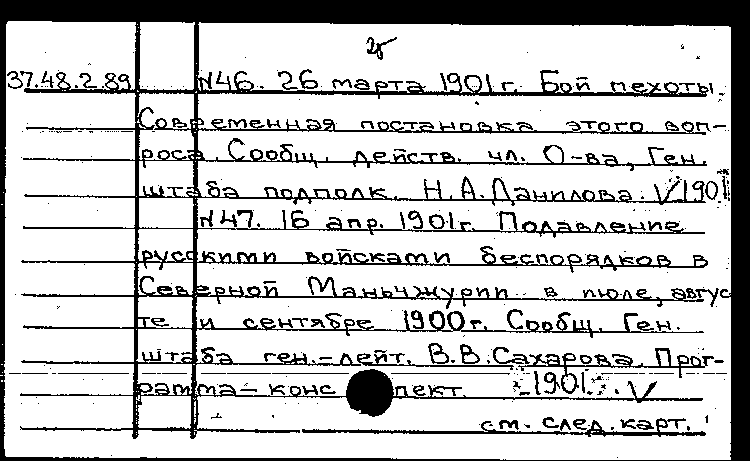 37.48.2.89 №46. 26 марта 1901г. Бой пехоты.
Современная постановка этого воп-
роса. Сообщ. действ. чл. О-ва, Ген.
штаба подполк. Н.А.Данилова. V 1901
№47. 16 апр. 1901г. Подавление
русскими войсками беспорядков в
Северной Маньчжурии в июле, авгус
те и сентябре 1900г. Сообщ. Ген.
штаба ген.-лейт. В.В.Сахарова. Прог-
рамма-конспект. 1901. V
см. след. карт.